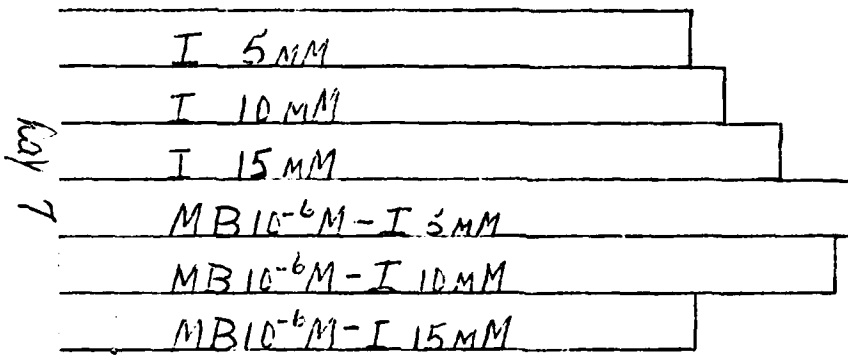 I 5 mM
I 10 mM
I 15 mM
MB 10⁻⁶ M - I 5 mM
MB 10⁻⁶ M - I 10 mM
MB 10⁻⁶ M - I 15 mM
7